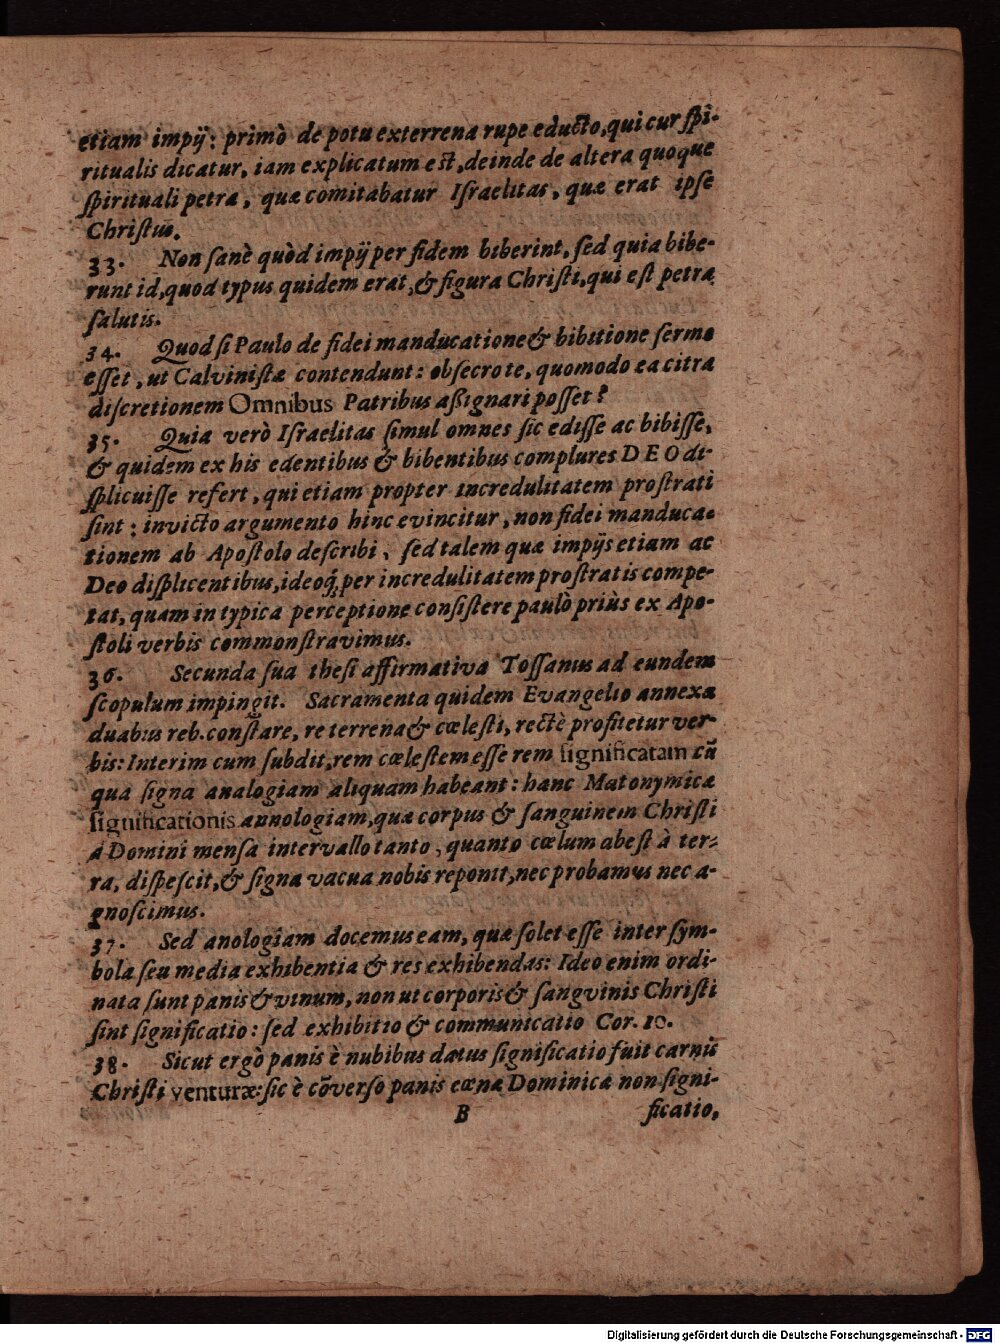 etiam impij: primò de potu ex terrena rupe educto, qui cur spi-
ritualis dicatur, iam explicatum est, deinde de altera quoque
spirituali petra, quæ comitabatur Israelitas, quæ erat ipse
Christus.
33. Non sanè quòd impij per fidem biberint, sed quia bibe-
runt id, quod typus quidem erat, & figura Christi, qui est petra
salutis.
34. Quod si Paulo de fidei manducatione & bibitione sermo
esset, ut Calvinistæ contendunt: obsecro te, quomodo ea citra
discretionem Omnibus Patribus aßignari posset?
35. Quia verò Israelitas simul omnes sic edisse ac bibisse,
& quidem ex his edentibus & bibentibus complures DEO di-
splicuisse refert, qui etiam propter incredulitatem prostrati
sint: invicto argumento hinc evincitur, non fidei manduca-
tionem ab Apostolo describi, sed talem quæ impijs etiam ac
Deo displicentibus, ideoq́; per incredulitatem prostratis compe-
tat, quam in typica perceptione consistere paulò priùs ex Apo-
stoli verbis commonstravimus.
36. Secunda sua thesi affirmativa Tossanus ad eundem
scopulum impingit. Sacramenta quidem Evangelio annexa
duabus reb. constare, re terrena & cœlesti, rectè profitetur ver-
bis: Interim cum subdit, rem cœlestem esse rem significatam cū
qua signa analogiam aliquam habeant: hanc Matonymicæ
significationis annologiam, quæ corpus & sanguinem Christi
à Domini mensa intervallo tanto, quanto cœlum abest à ter-
ra, dispescit, & signa vacua nobis reponit, nec probamus nec a-
gnoscimus.
37. Sed anologiam docemus eam, quæ solet esse inter sym-
bola seu media exhibentia & res exhibendas: Ideo enim ordi-
nata sunt panis & vinum, non ut corporis & sangvinis Christi
sint significatio: sed exhibitio & communicatio Cor. 10.
38. Sicut ergò panis è nubibus datus significatio fuit carnis
Christi venturæ: sic è cōverso panis cœnæ Dominicæ non signi-
B ficatio,
Digitalisierung gefördert durch die Deutsche Forschungsgemeinschaft - DFG